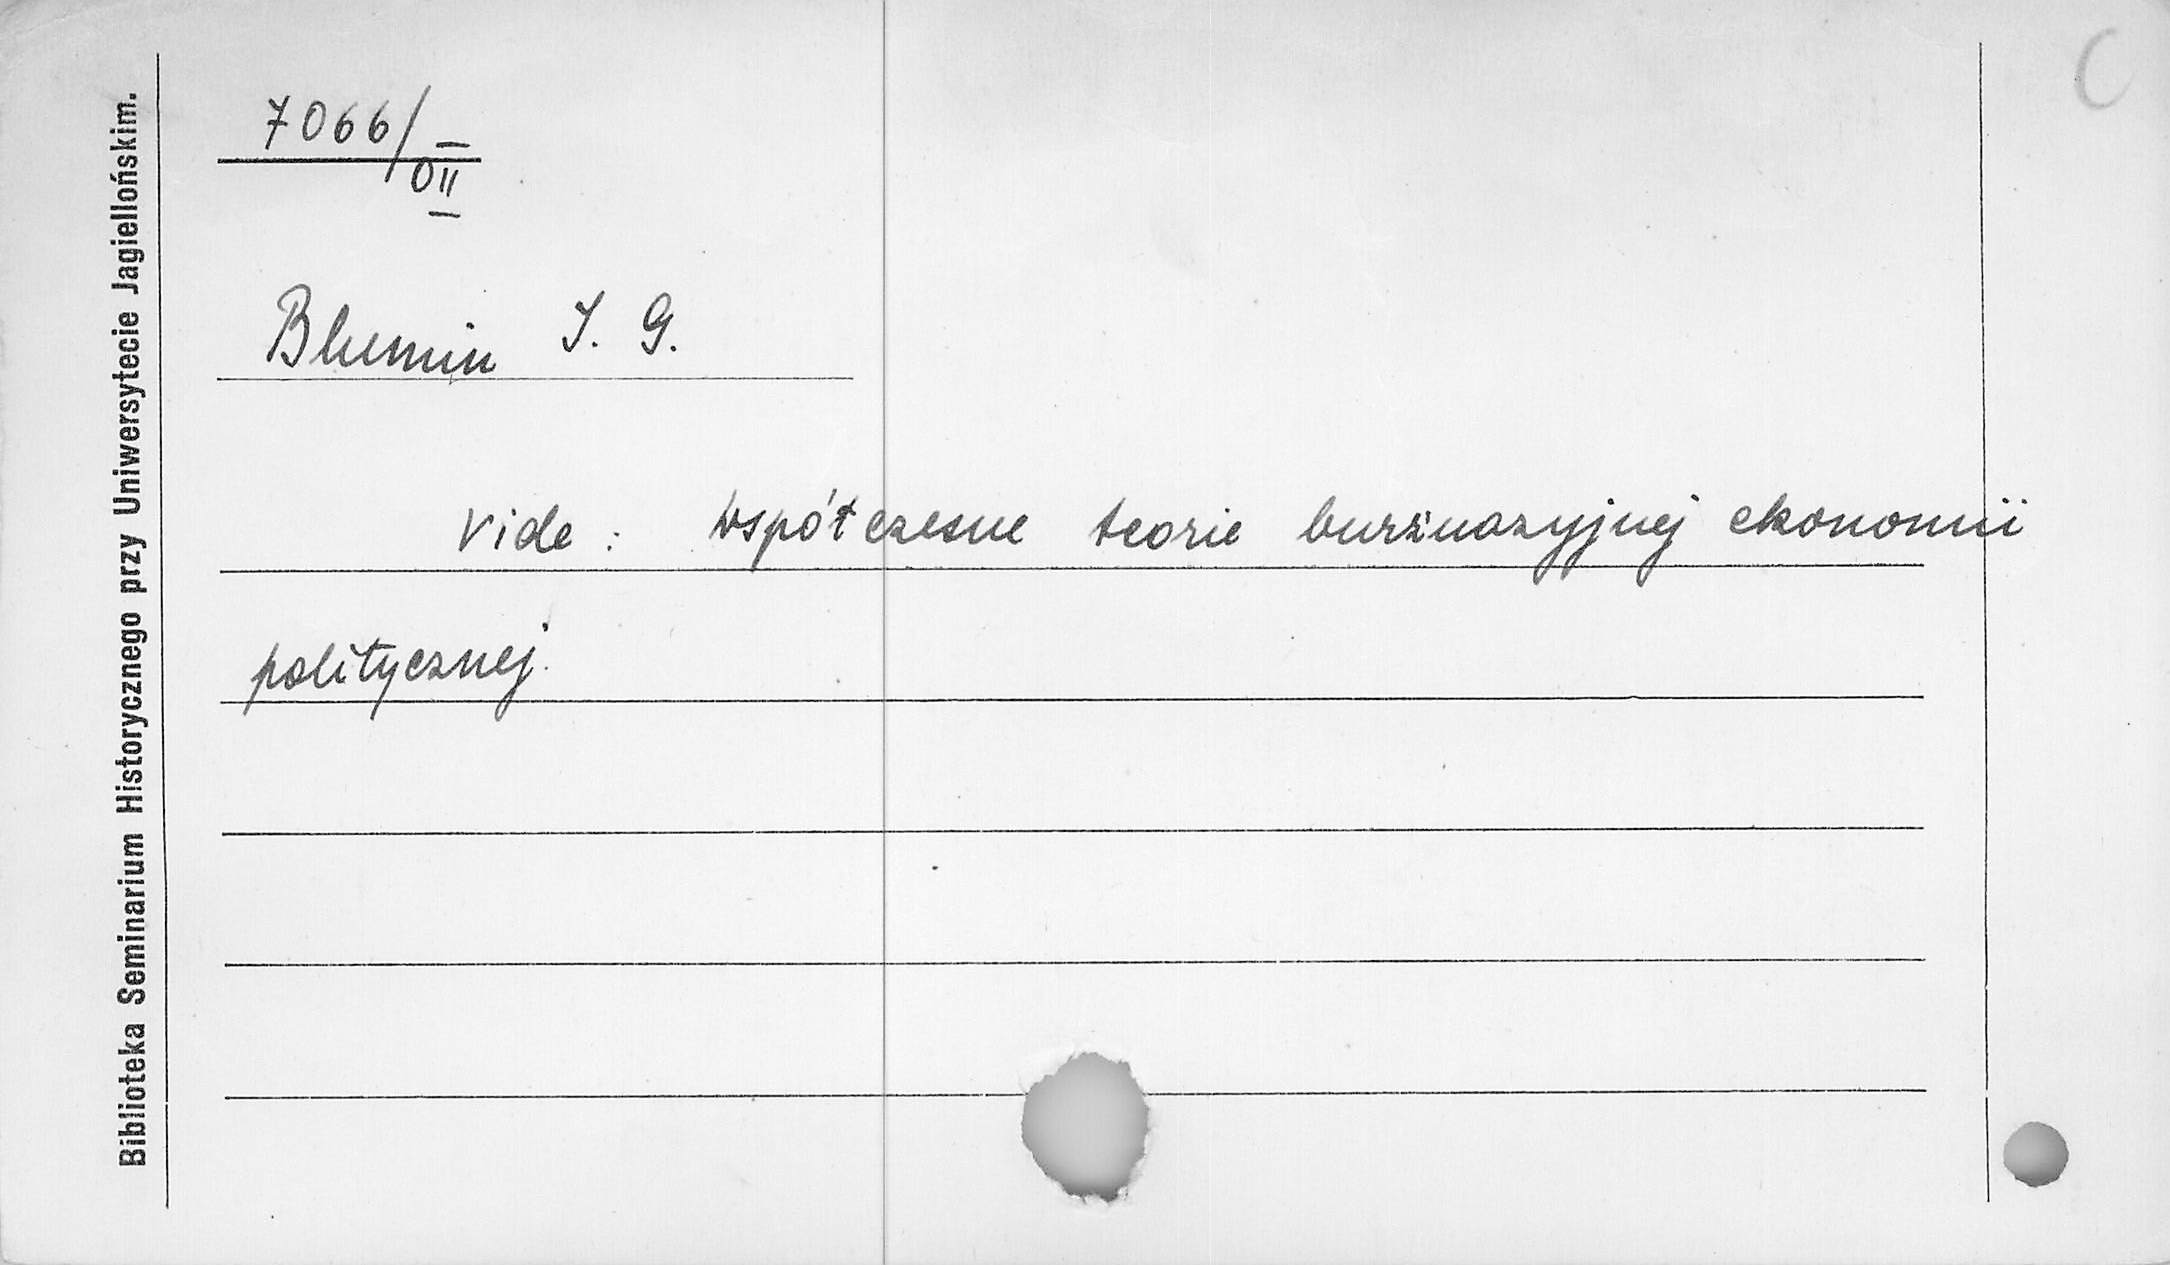 C
7066/OII
Blumin J. G.
Vide: Współczesne teorie burżuazyjnej ekonomii
politycznej.
Biblioteka Seminarium Historycznego przy Uniwersytecie Jagiellońskim.